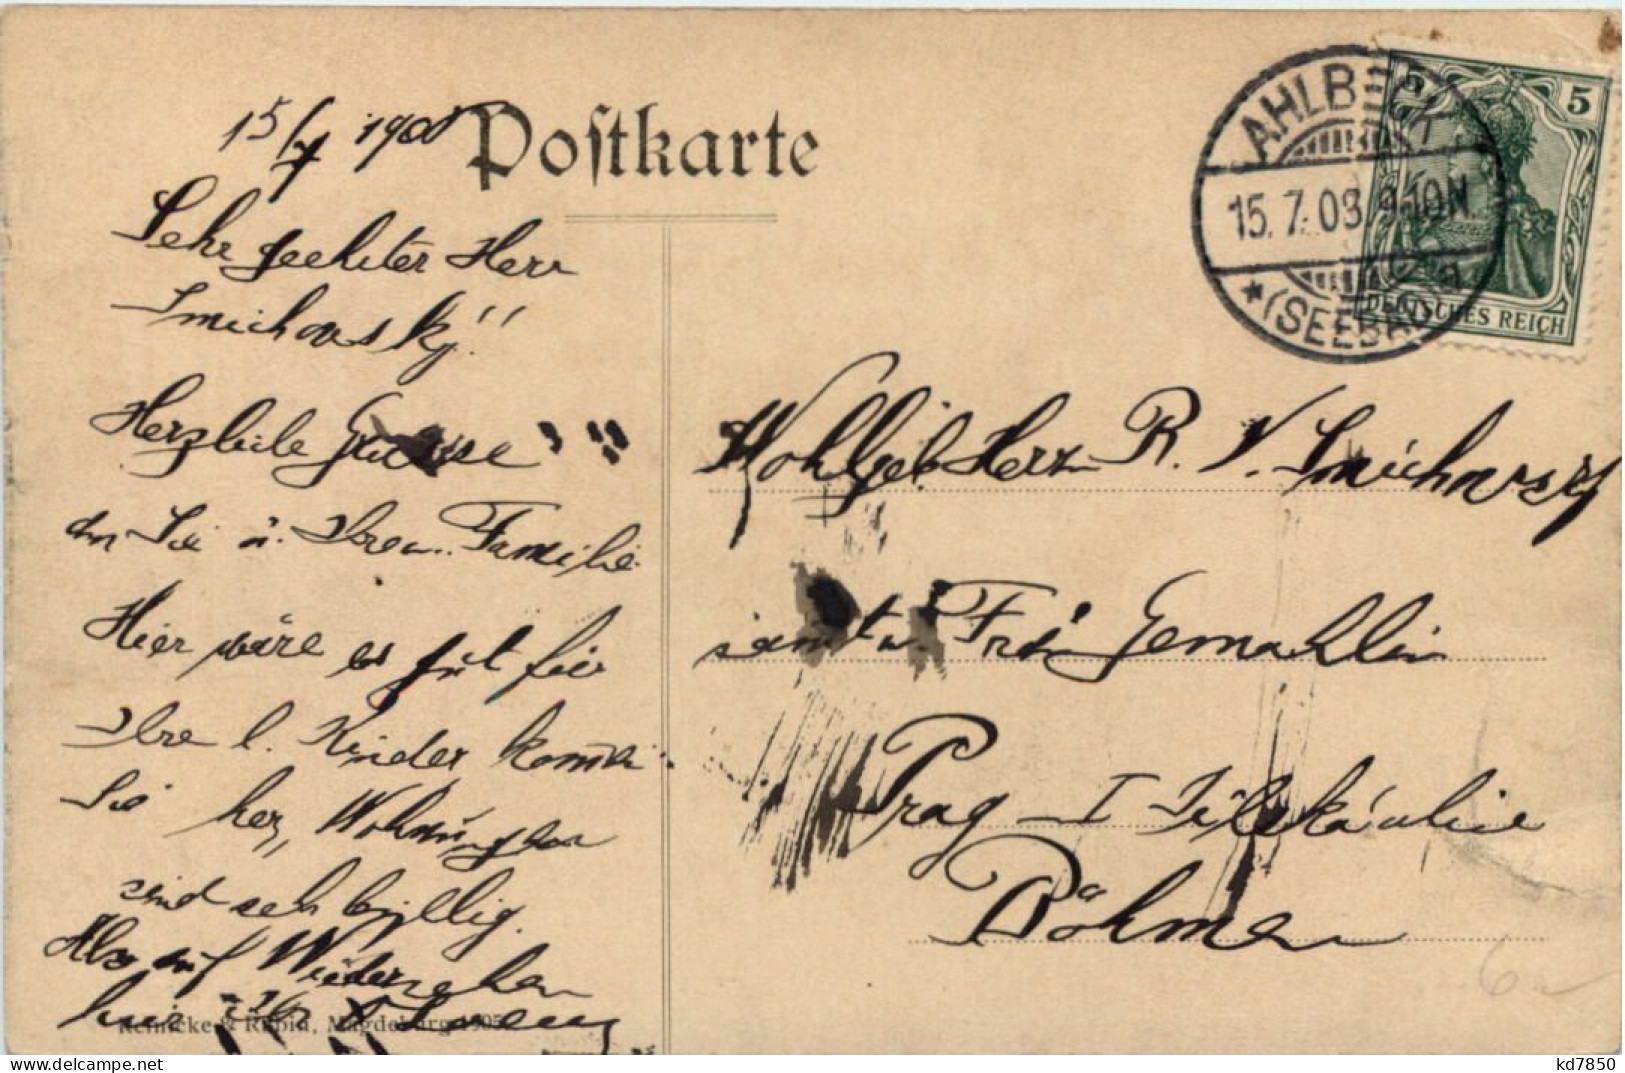 15/7 1908
Postkarte
AHLBECK
15.7.08.9-10N
* (SEEBAD) a
5 5
DEUTSCHES REICH
Sehr geehrter Herr
Smichovsky!!
Herzliche Grüsse
an Sie u. Ihre w. Familie
Hier wäre es gut für
Ihre l. Kinder
Sie her, Wohnungen
sind sehr billig.
Also auf Wiedersehen
hier Ihr
Reinicke & Rubin, Magdeburg 1905
Wohlgeb Herrn R. V. Smichovsky
samt w. Frau Gemahlin
Prag I
Böhmen
6-
kd7850